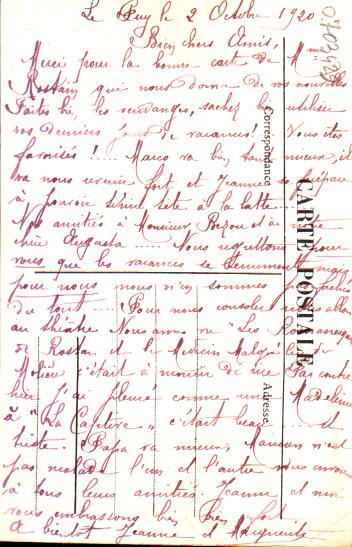 Le Puy le 2 Octobre 1920
Bien chers Amis,
Merci pour la bonne carte de Mme
Rostain qui nous donne de vos nouvelles
Faites bien les vendanges, sachez bien utiliser
vos derniers jours de vacances! Vous êtes
favorisés! .... Marco va bien, bien mieux, et
va nous revenir fort et Jeanne se prépare
à pouvoir tenir tête à la lutte
Nos amitiés à Monsieur et à notre
chère Augusta ..... Nous regrettons pour
vous que les vacances se terminent
pour nous nous n'en sommes pas fâchés
du tout ..... Pour nous consoler nous allons
au théâtre Nous avons vu "Les Romanesques
de Rostan et le Médecin Malgré lui de
Molière c'était à mourir de rire Par contre
hier j'ai pleuré comme une Madeleine
à "La Captive" c'était beau ..... et
triste. Papa va mieux, Maman n'est
pas malade l'un et l'autre vous envoient
à tous leurs amitiés. Jeanne et moi
vous embrassons bien bien fort
A bientôt Jeanne et Marguerite
CARTE POSTALE
Correspondance
Adresse